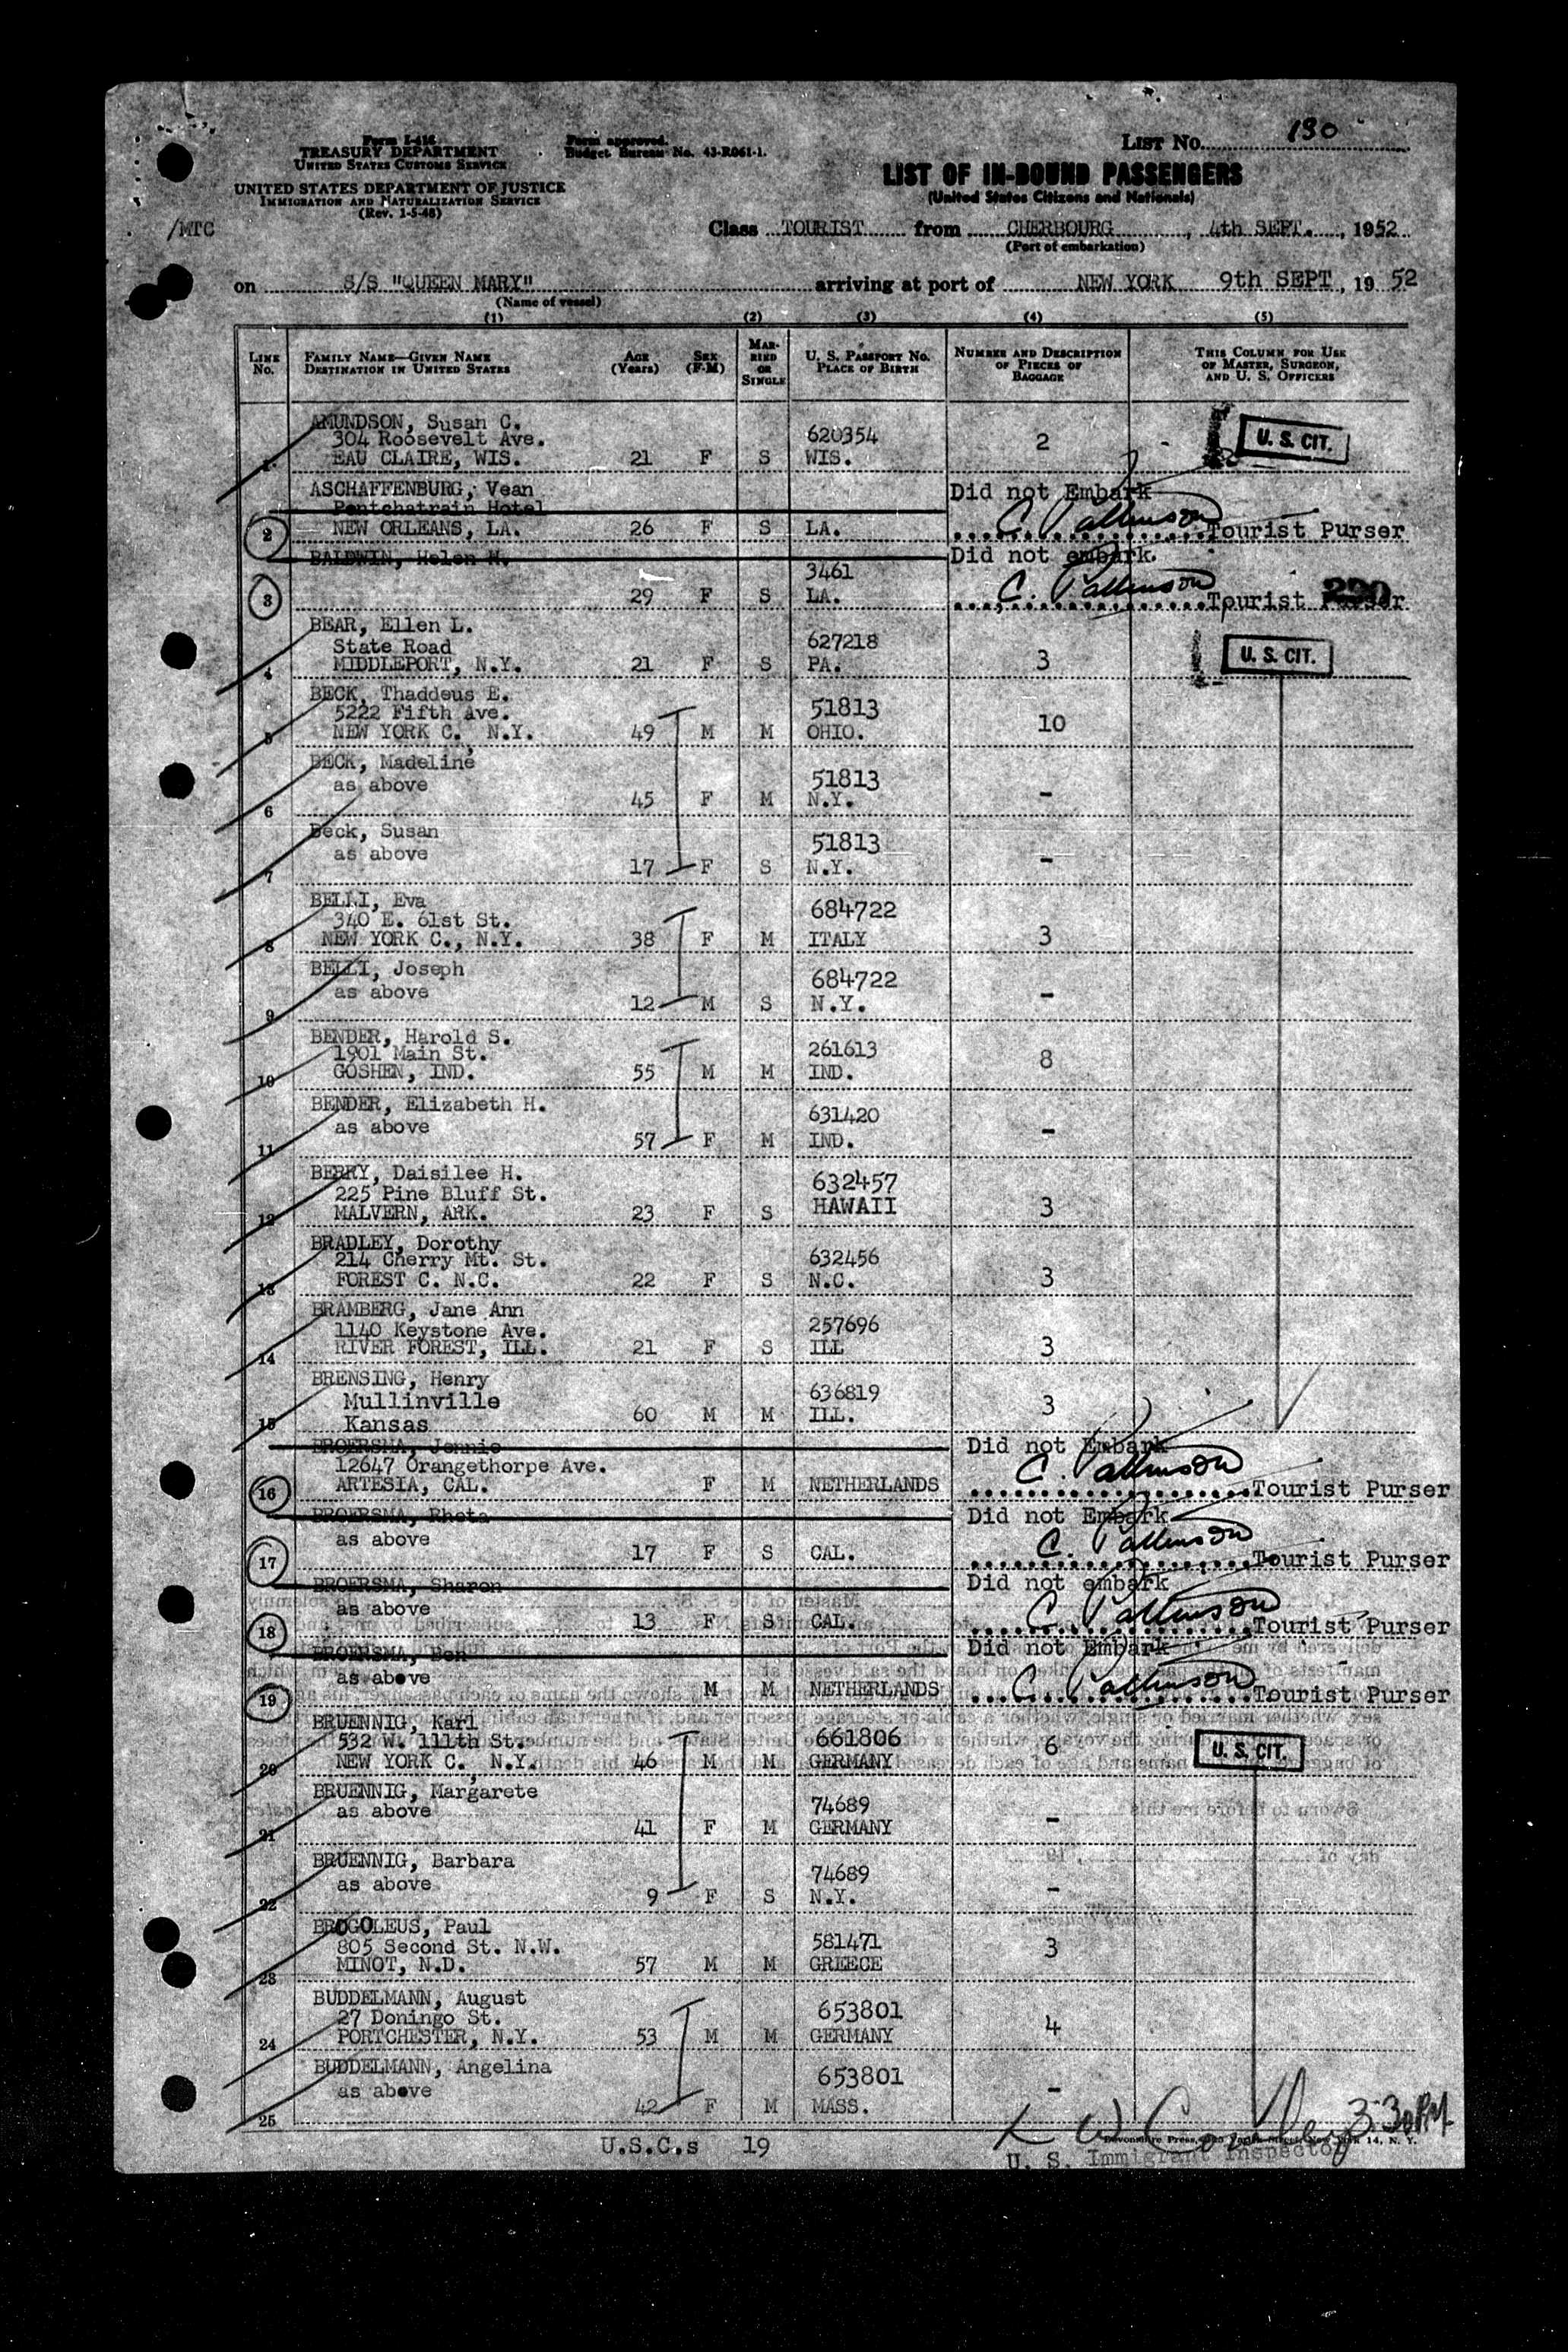 Form I-416
TREASURY DEPARTMENT
UNITED STATES CUSTOMS SERVICE
UNITED STATES DEPARTMENT OF JUSTICE
IMMIGRATION AND NATURALIZATION SERVICE
(Rev. 1-5-48)
Form approved.
Budget Bureau No. 43-R061-1.
LIST No. 130
LIST OF IN-BOUND PASSENGERS
(United States Citizens and Nationals)
/MTC
Class TOURIST from CHERBOURG, 4th SEPT., 1952
(Port of embarkation)
on S/S "QUEEN MARY" arriving at port of NEW YORK 9th SEPT, 19 52
(Name of vessel)
(1) (2) (3) (4) (5)
LINE No. FAMILY NAME—GIVEN NAME DESTINATION IN UNITED STATES AGE (Years) SEX (F-M) MARRIED OR SINGLE U. S. PASSPORT No. PLACE OF BIRTH NUMBER AND DESCRIPTION OF PIECES OF BAGGAGE THIS COLUMN FOR USE OF MASTER, SURGEON, AND U. S. OFFICERS
AMUNDSON, Susan C.
304 Roosevelt Ave. 620354 2 U. S. CIT.
1 EAU CLAIRE, WIS. 21 F S WIS.
ASCHAFFENBURG, Vean Did not Embark
Pontchatrain Hotel C. Pattinson
2 NEW ORLEANS, LA. 26 F S LA. Tourist Purser
BALDWIN, Helen M. Did not embark.
3461 C. Pattinson
3 29 F S LA. Tourist Purser 290
BEAR, Ellen L.
State Road 627218 3 U. S. CIT.
4 MIDDLEPORT, N.Y. 21 F S PA.
BECK, Thaddeus E.
5222 Fifth Ave. 51813 10
5 NEW YORK C., N.Y. 49 M M OHIO.
BECK, Madeline
as above 51813
6 45 F M N.Y. -
Beck, Susan
as above 51813
7 17 F S N.Y. -
BELLI, Eva
340 E. 61st St. 684722
8 NEW YORK C., N.Y. 38 F M ITALY 3
BELLI, Joseph
as above 684722
9 12 M S N.Y. -
BENDER, Harold S.
1901 Main St. 261613 8
10 GOSHEN, IND. 55 M M IND.
BENDER, Elizabeth H.
as above 631420
11 57 F M IND. -
BERRY, Daisilee H.
225 Pine Bluff St. 632457
12 MALVERN, ARK. 23 F S HAWAII 3
BRADLEY, Dorothy
214 Cherry Mt. St. 632456
13 FOREST C. N.C. 22 F S N.C. 3
BRAMBERG, Jane Ann
1140 Keystone Ave. 257696
14 RIVER FOREST, ILL. 21 F S ILL 3
BRENSING, Henry
Mullinville 636819 3
15 Kansas 60 M M ILL.
BROERSMA, Jennie Did not Embark
12647 Orangethorpe Ave. C. Pattinson
16 ARTESIA, CAL. F M NETHERLANDS Tourist Purser
BROERSMA, Rheta Did not Embark
as above C. Pattinson
17 17 F S CAL. Tourist Purser
BROERSMA, Sharon Did not embark
as above C. Pattinson
18 13 F S CAL. Tourist Purser
BROERSMA, Ben Did not Embark
as above C. Pattinson
19 M M NETHERLANDS Tourist Purser
BRUENNIG, Karl
532 W. 111th St. 661806 6 U. S. CIT.
20 NEW YORK C., N.Y. 46 M M GERMANY
BRUENNIG, Margarete
as above 74689
21 41 F M GERMANY -
BRUENNIG, Barbara
as above 74689
22 9 F S N.Y. -
BROGOLEUS, Paul
805 Second St. N.W. 581471 3
23 MINOT, N.D. 57 M M GREECE
BUDDELMANN, August
27 Doningo St. 653801 4
24 PORTCHESTER, N.Y. 53 M M GERMANY
BUDDELMANN, Angelina
as above 653801 -
25 42 F M MASS.
U.S.C.s 19
3:30 PM
U. S. Immigrant Inspector